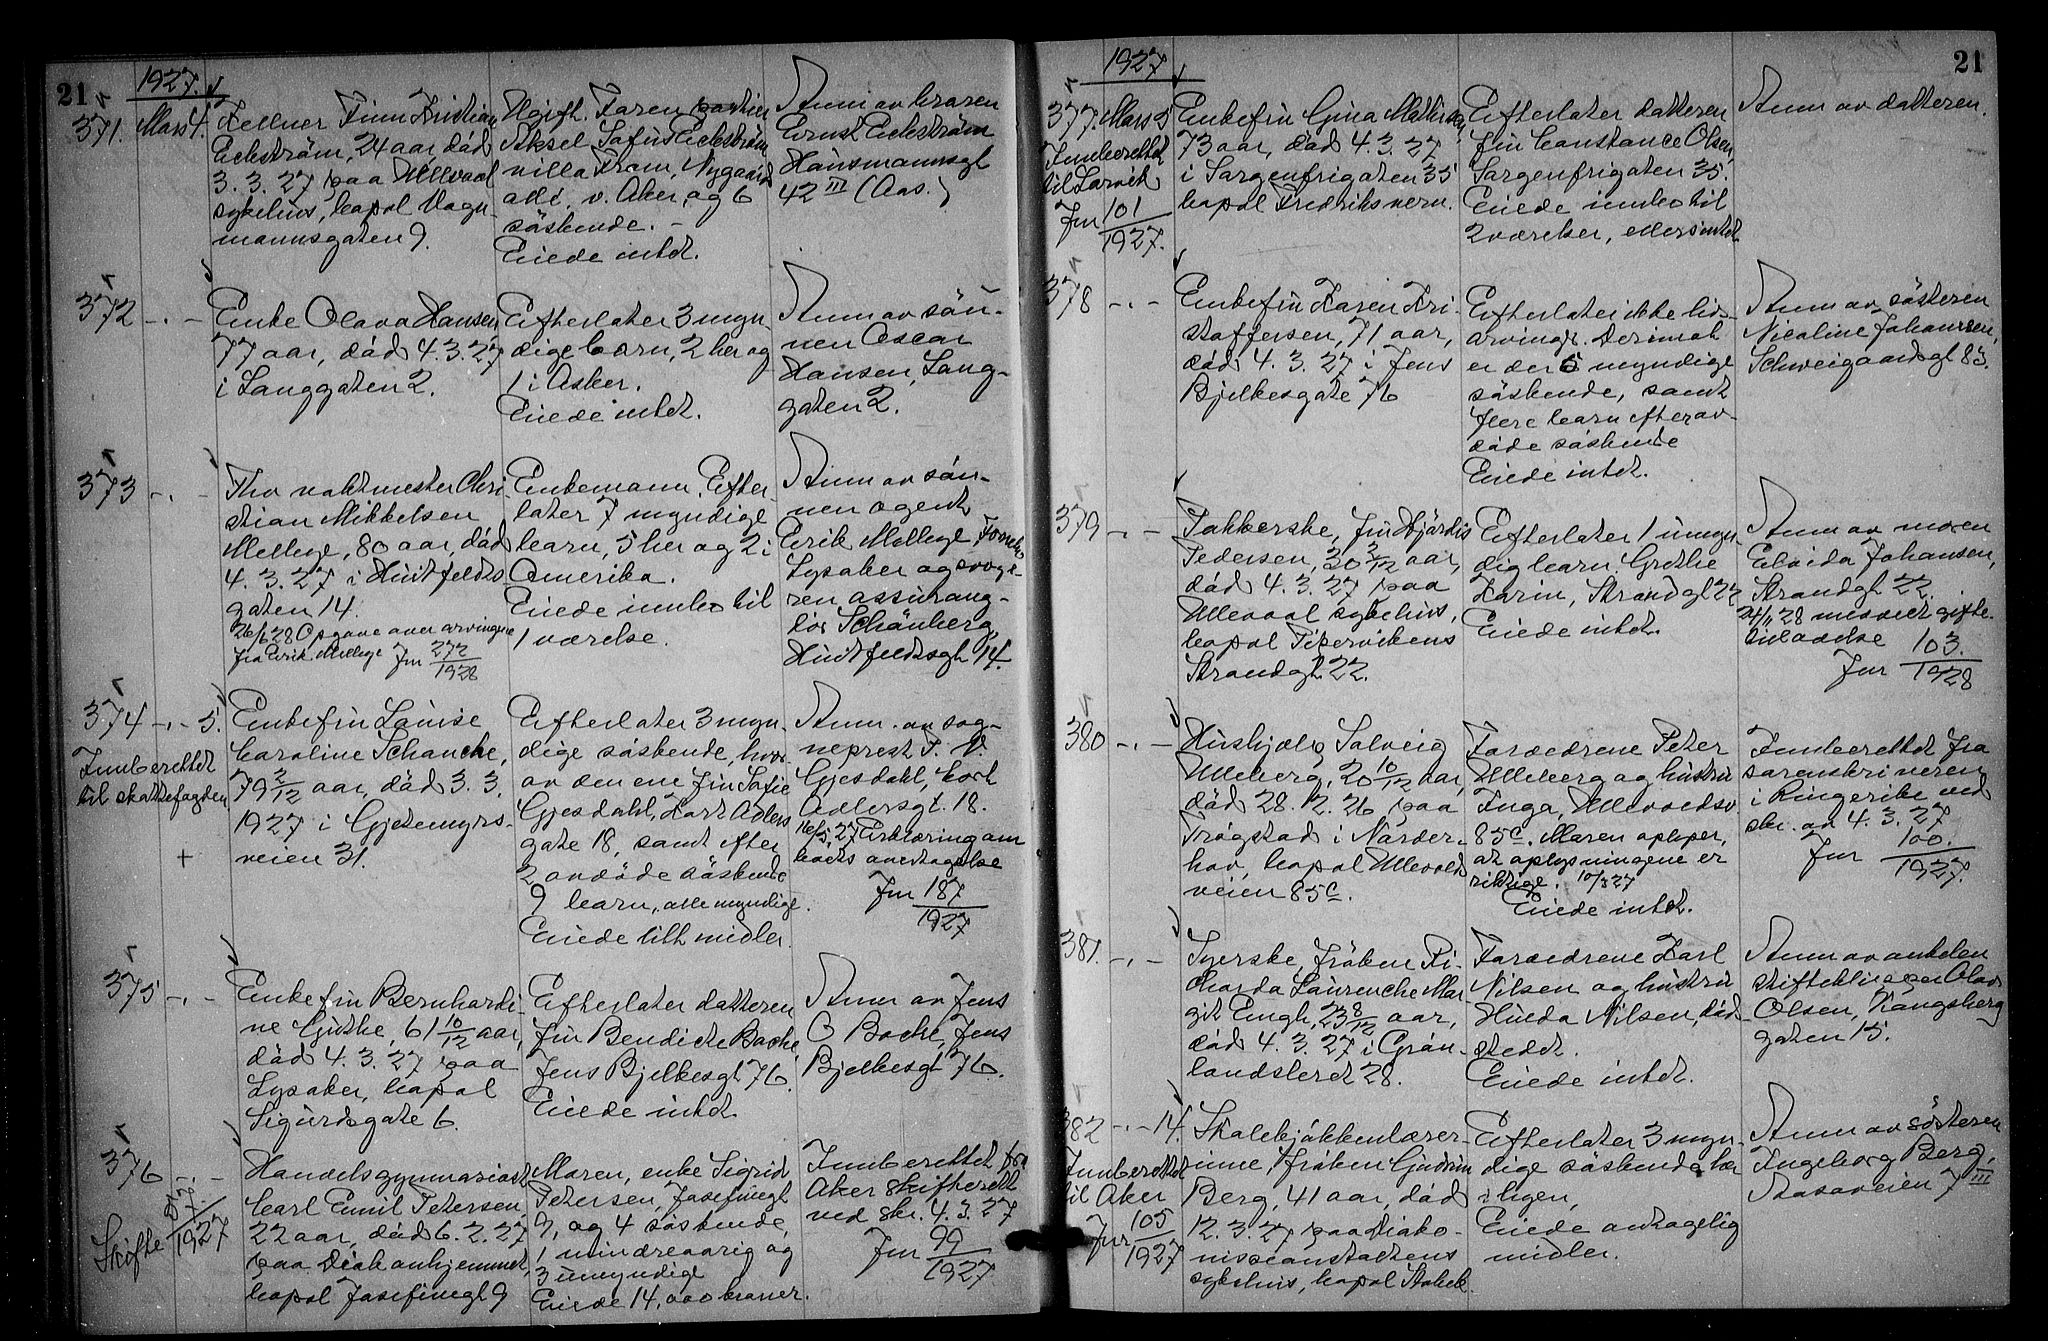 21
1927.
371. Mars 4.
Kellner Finn Kristian
Eckström, 24 aar, död
3. 3. 27 paa Ullevaal
sykehus, bopæl Vogn-
mannsgaten 9.
Ugift. Faren
Aksel Eckström
villa Fram, Nygaards
alle, v. Aker, og 6
söskende. -
Eiede intet.
Anm av broren
Ernst Eckström
Hausmannsgt
42 III (Aas.)
372 -.-
Enke Olava Hansen
77 aar, död 4. 3. 27
i Langgaten 2.
Efterlater 3 myn-
dige barn, 2 her og
1 i Asker.
Eiede intet.
Anm av sön-
nen Oscar
Hansen, Lang-
gaten 2.
373 -.-
Fhv vaktmester Chri-
stian Mikkelsen
Mellege, 80 aar, död
4. 3. 27 i Huitfeldts-
gaten 14.
26/6 28 Opgave over arvingene
fra Erik Mellege Jnr 272/1928
Enkemann. Efter-
later 7 myndige
barn, 5 her og 2 i
Amerika.
Eiede innbo til
1 værelse.
Anm av sön-
nen agent
Erik Mellege, Fornebo
Lysaker og svoge-
ren assurang-
lör Schönberg,
Huitfeldtsgt 14.
374 -.- 5.
Innberettet
til skattefogden
+
Enkefru Louise
Caroline Schanche,
79 2/12 aar, död 3. 3.
1927 i Gjetemyrs-
veien 31.
Efterlater 3 myn-
dige söskende, hvor-
av den ene fru Sofie
Gjesdahl, Kort Adlers
gate 18, samt efter
2 avdöde söskende
9 barn, alle myndige.
Eiede litt midler.
Anm. av sog-
neprest F. V.
Gjesdahl, Cort
Adlersgt. 18.
16/5 27 Erklæring om
boets overtagelse
Jnr 187/1927
375 -.-
Enkefru Bernhardi-
ne Guthe, 61 10/12 aar,
död 4. 3. 27 paa
Lysaker, bopæl
Sigurdsgate 6.
Efterlater datteren
fru Bendicte Bache,
Jens Bjelkesgt 76.
Eiede intet.
Anm av Jens
O Bache, Jens
Bjelkesgt 76.
376 -.-
Skifte 1927
Handelsgymnasiast
Carl Emil Petersen,
22 aar, död 6. 2. 27
paa Diakonhjemmet,
bopæl Josefinegt 9
Moren, enke Sigrid
Petersen, Josefinegt
9, og 4 söskende,
1 mindreaarig og
3 umyndige
Eiede 14,000 kroner.
Innberettet fra
Aker skifterett
ved skr. 4. 3. 27
Jnr 99/1927
21
1927
377. Mars 5
Innberettet
til Larvik
Jnr 101/1927.
Enkefru Gina Mathisen,
73 aar, död 4. 3. 27
i Sorgenfrigaten 35
bopæl Fredriksvern.
Efterlater datteren
fru Constance Olsen,
Sorgenfrigaten 35.
Eiede innbo til
2 værelser, ellers intet
Anm av datteren.
378 -.-
Enkefru Karen Kri-
stoffersen, 71 aar,
död 4. 3. 27 i Jens
Bjelkesgate 76
Efterlater ikke livs-
arvinger. Derimot
er der 5 myndige
söskende, samt
flere barn efter av-
döde söskende
Eiede intet.
Anm av sösteren
Nicoline Johansen,
Schweigaardsgt 83.
379 -.-
Pakkerske, fru Hjördis
Pedersen, 30 2/12 aar,
död 4. 3. 27 paa
Ullevaal sykehus,
bopæl Pipervikens
Strandgt 22.
Efterlater 1 umyn-
dig barn Grethe
Karin, Strandgt 22
Eiede intet.
Anm av moren
Elvida Johansen,
Strandgt 22.
24/11 28 meddelt gifte-
tilladelse
Jnr 103./1928
380 -.-
Hushjelp Solveig
Ulleberg, 20 10/12 aar,
död 28. 12. 26 paa
Trögstad i Norder-
hov, bopæl Ullevolds
veien 85c.
Foreldrene Peter
Ulleberg og hustru
Inga, Ullevoldsv.
85c. Moren oplyser,
at oplysningene er
riktige. 10/3 27
Eiede intet.
Innberettet fra
sorenskriveren
i Ringerike ved
skr. av 4. 3. 27
Jnr 100./1927.
381. -.-
Syerske, fröken Ri-
charda Laurenche Mar-
git Engh, 23 8/12 aar,
död 4. 3. 27 i Grön-
landsleret 28.
Foreldrene Karl
Nilsen og hustru
Hulda Nilsen, död-
stedet.
Eiede intet.
Anm av onkelen
Olav
Olsen, Kongsberg
gaten 15.
382 -.- 14.
Innberettet
til Aker
Jnr 105/1927
Skolekjökkenlærer-
inne, fröken Gudrun
Berg, 41 aar, död
12. 3. 27 paa Diako-
nisseanstaltens
sykehus, bopæl Stabek
Efterlater 3 myn-
dige söskende her
i byen,
Eiede antagelig
midler.
Anm av sösteren
Ingeborg Berg,
Stasaveien 7 III